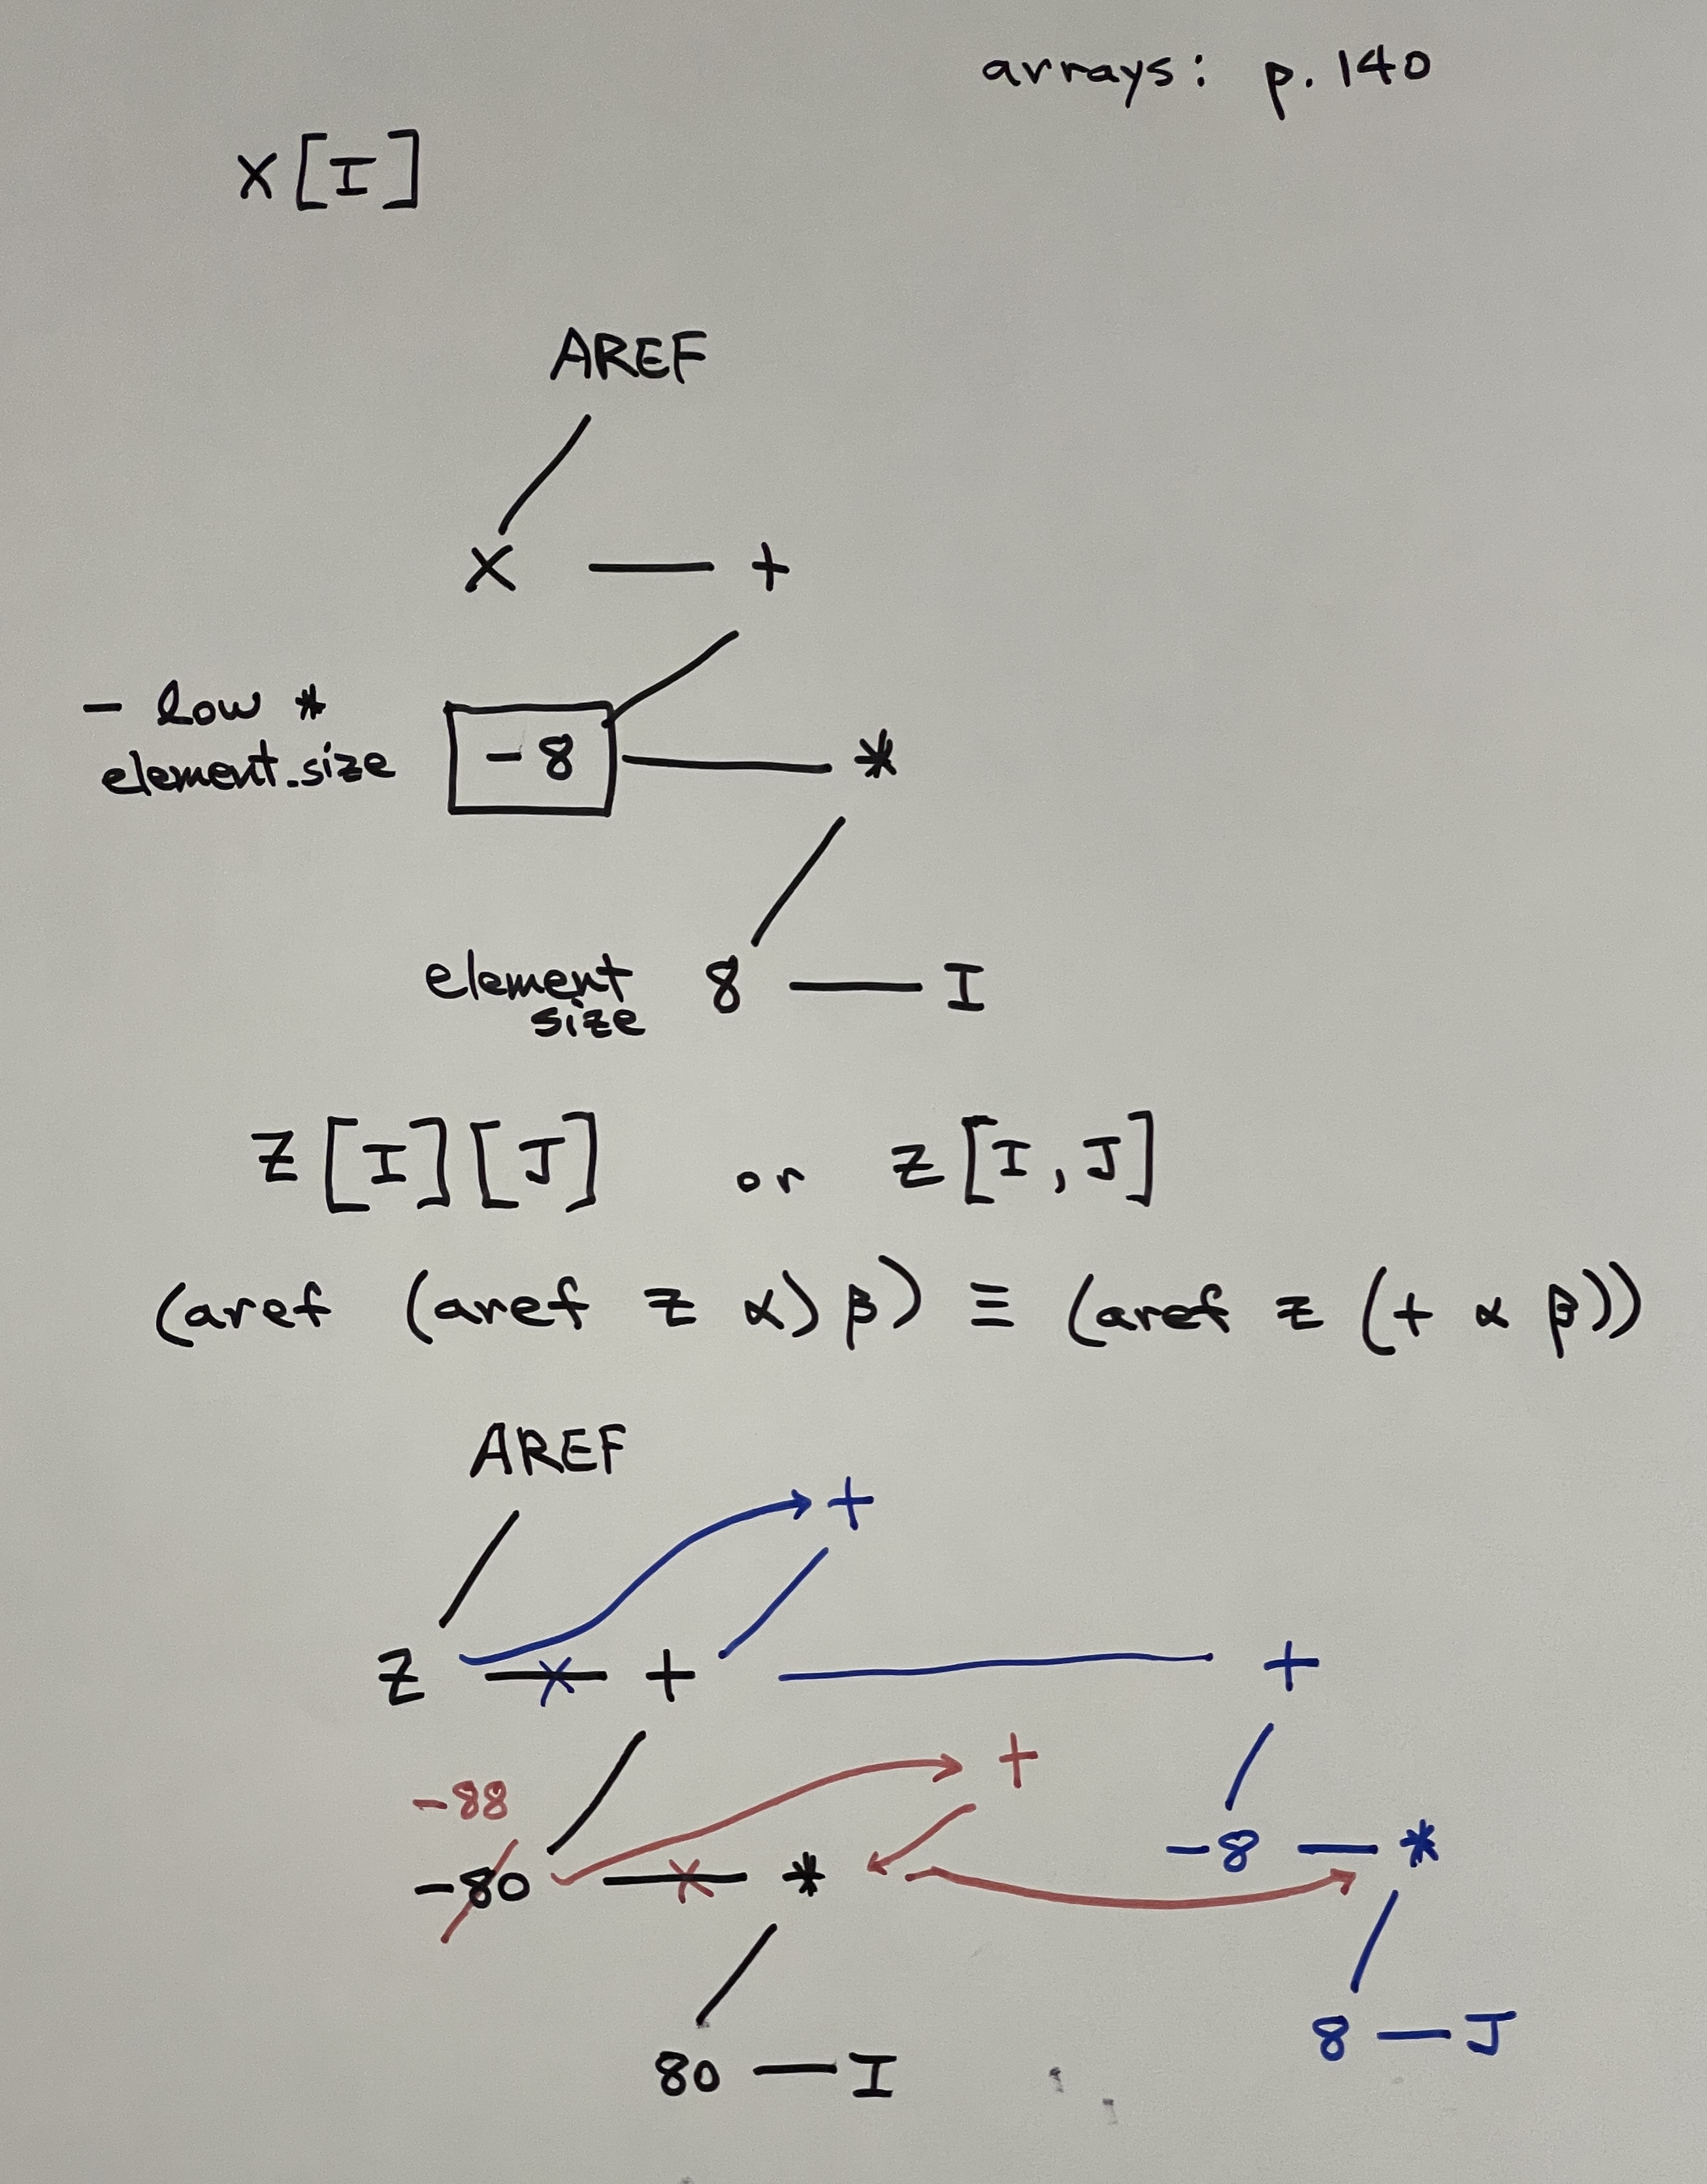 arrays: p. 140
X[I]
AREF
X — +
- low *
element-size
-8 — *
element
size
8 — I
Z[I][J] or Z[I,J]
(aref (aref z α) β) ≡ (aref z (+ α β))
AREF
+
Z — + — +
+
-88
-80 — *
-8 — *
8 — J
80 — I